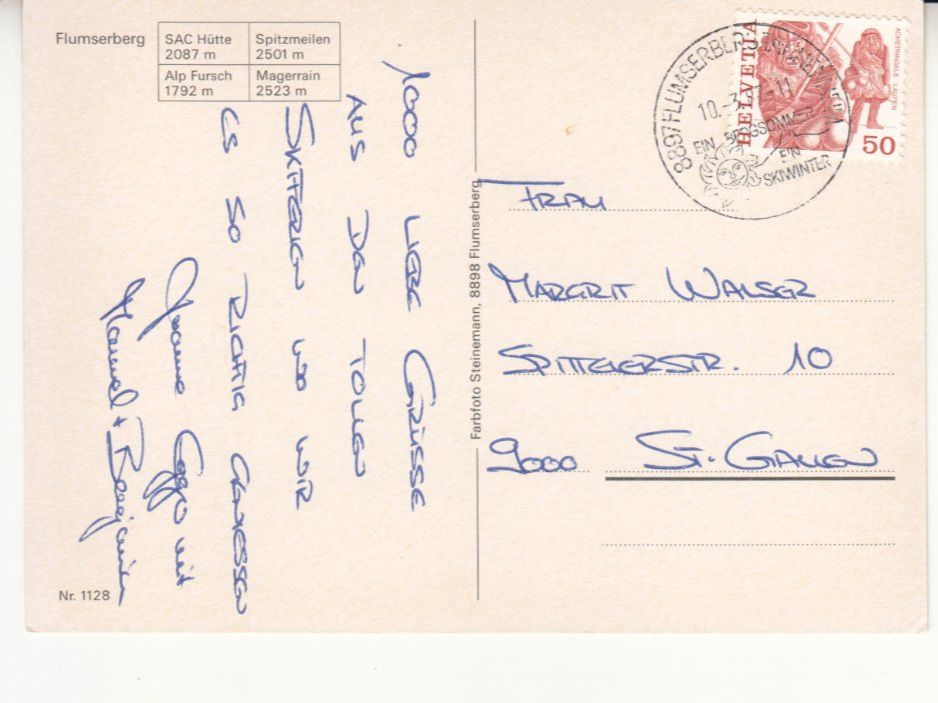 Flumserberg
SAC Hütte
2087 m
Spitzmeilen
2501 m
Alp Fursch
1792 m
Magerrain
2523 m
1000 LIEBE GRÜSSE
AUS DEN TOLLEN
SKIFERIEN WO WIR
ES SO RICHTIG GENIESSEN
mit
Manuel + Benjamin
Nr. 1128
Farbfoto Steinemann, 8898 Flumserberg
HELVETIA
50
8897 FLUMSERBERG
10.-3.
EIN BERGSOMMER
EIN
SKIWINTER
FRAU
MARGRIT WALSER
SPITTELERSTR. 10
9000 ST. GALLEN